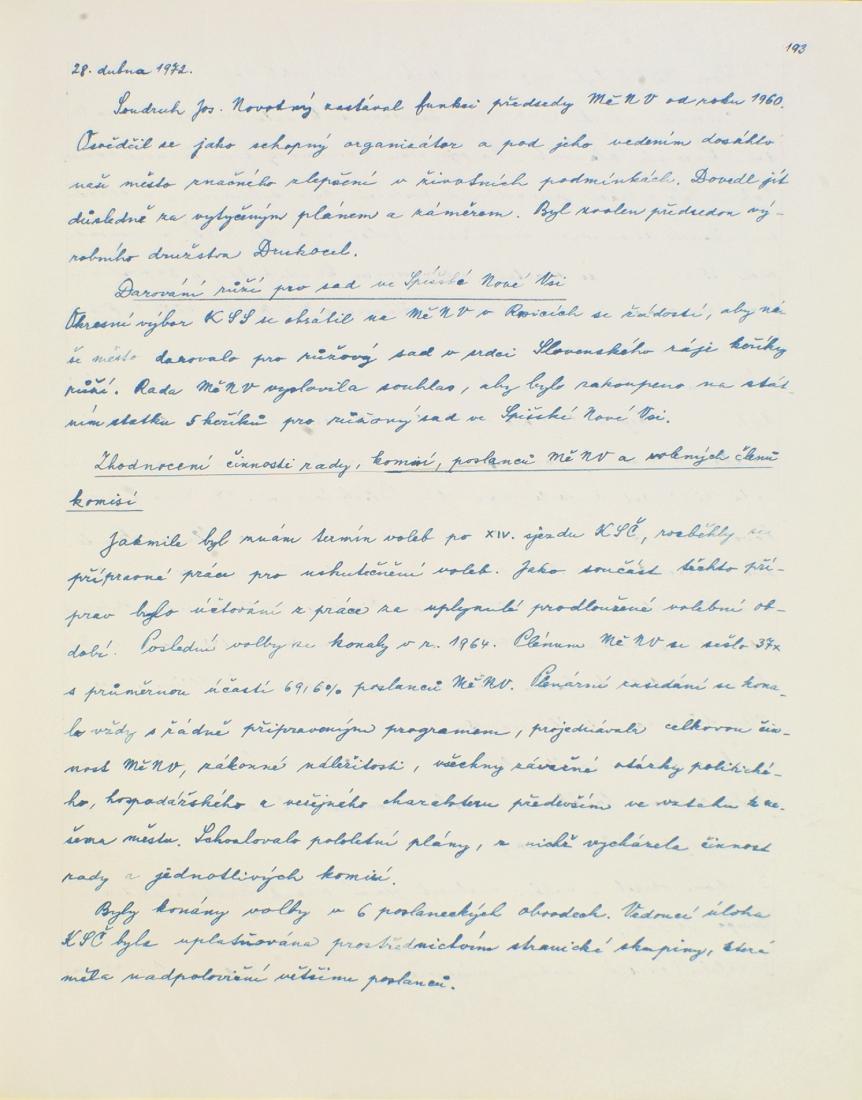 193
28. dubna 1972.
Soudruh Jos. Novotný zastával funkci předsedy MěNV od roku 1960.
Osvědčil se jako schopný organizátor a pod jeho vedením dosáhlo
naše město značného zlepšení v životních podmínkách. Dovedl jít
důsledně za vytyčeným plánem a záměrem. Byl zvolen předsedou vý-
robního družstva Drukocel.
Darování růží pro sad ve Spišské Nové Vsi
Okresní výbor KSS se obrátil na MěNV v Řosicích se žádostí, aby na-
še město darovalo pro růžový sad v srdci Slovenského ráje keříky
růží. Rada MěNV vyslovila souhlas, aby bylo zakoupeno na stát-
ním statku 5 keříků pro růžový sad ve Spišské Nové Vsi.
Zhodnocení činnosti rady, komisí, poslanců MěNV a volených členů
komisí
Jakmile byl znám termín voleb po XIV. sjezdu KSČ, rozběhly se
přípravné práce pro uskutečnění voleb. Jako součást těchto pří-
prav bylo účtování z práce za uplynulé prodloužené volební ob-
dobí. Poslední volby se konaly v r. 1964. Plénum MěNV se sešlo 37x
s průměrnou účastí 69,6% poslanců MěNV. Plenární zasedání se kona-
la vždy s řádně připraveným programem, projednávala celkovou čin-
nost MěNV, zákonné náležitosti, všechny závažné otázky politické-
ho, hospodářského a veřejného charakteru především ve vztahu k na-
šemu městu. Schvalovalo pololetní plány, z nichž vycházela činnost
rady a jednotlivých komisí.
Byly konány volby v 6 poslaneckých obvodech. Vedoucí úloha
KSČ byla uplatňována prostřednictvím stranické skupiny, která
měla nadpoloviční většinu poslanců.